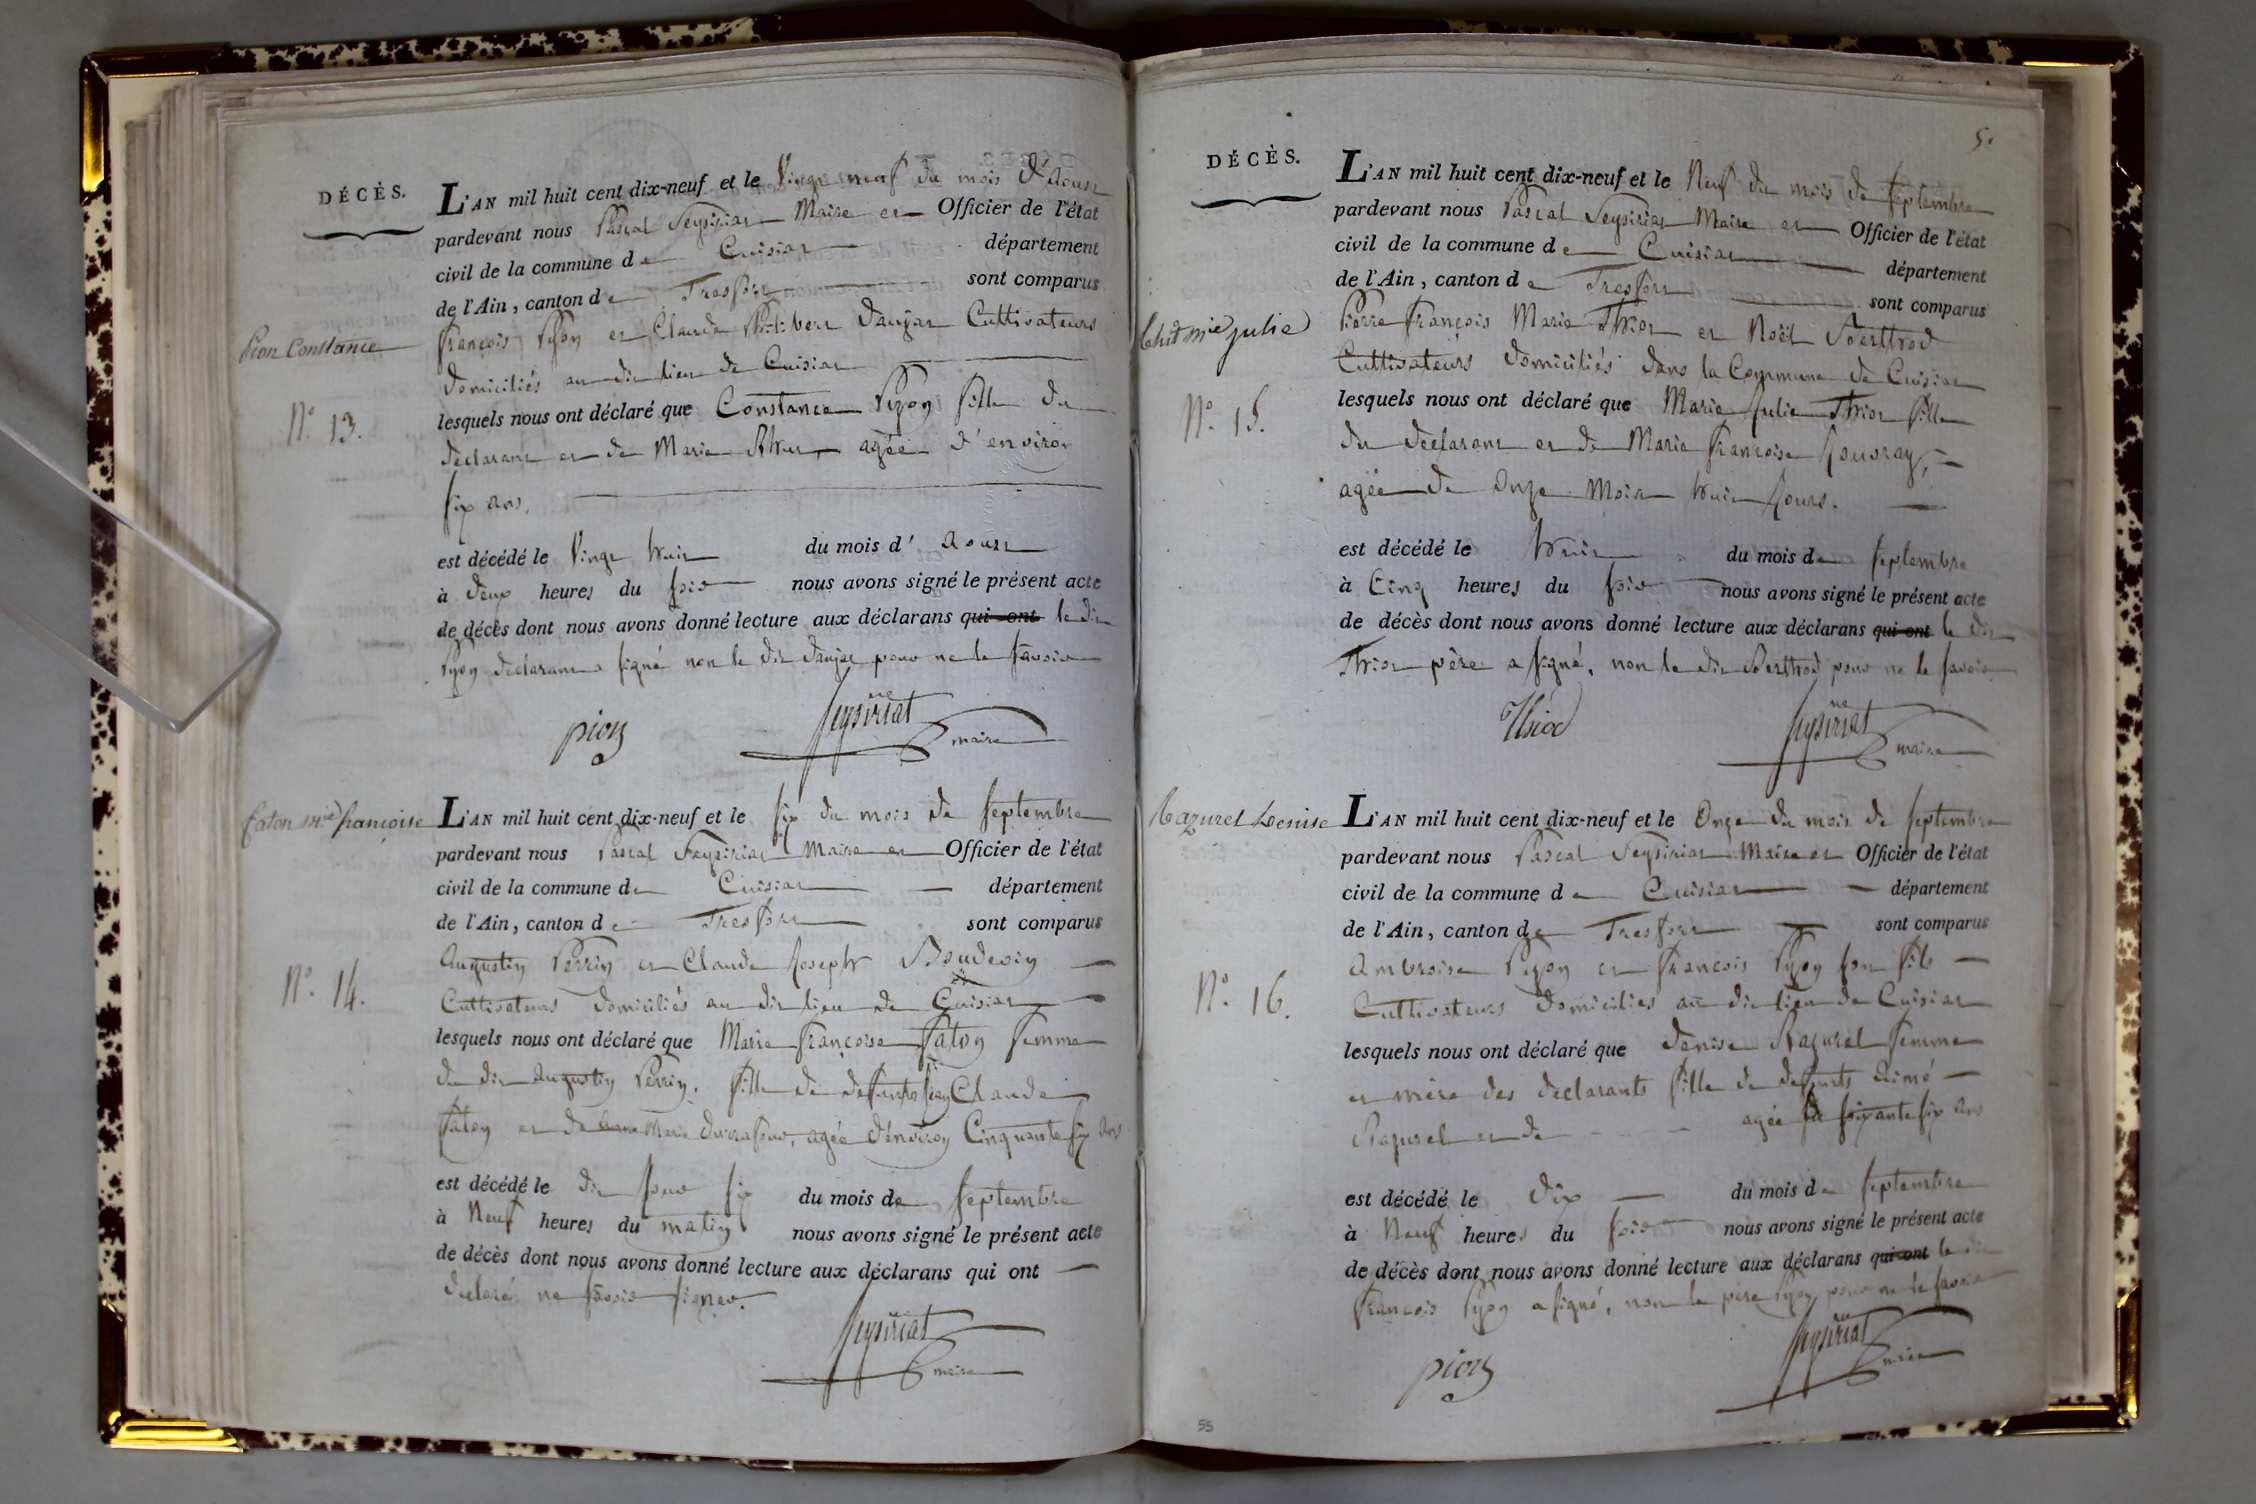 DÉCÈS.
L'AN mil huit cent dix-neuf et le Vingt neuf du mois d'Aoust
pardevant nous Pascal Seysiriat Maire et Officier de l'état
civil de la commune de Cuisiat département
de l'Ain, canton de Treffort sont comparus
Pion Constance
françois Pyon et Claude Philibert Daujat Cultivateurs
domiciliés au dit lieu de Cuisiat
N.º 13.
lesquels nous ont déclaré que Constance Pyon fille du
déclarant et de Marie agée d'environ
six ans.
est décédé le Vingt huit du mois d'Aoust
à deux heures du soir nous avons signé le présent acte
de décès dont nous avons donné lecture aux déclarans qui ont le dit
Pyon déclarant a signé non le dit Daujat pour ne le savoir
pion Seysiriat
maire
faton m.ie françoise
L'AN mil huit cent dix-neuf et le six du mois de septembre
pardevant nous Pascal Seysiriat Maire et Officier de l'état
civil de la commune de Cuisiat département
de l'Ain, canton de Treffort sont comparus
Augustin Perrin et Claude Joseph Boudevin
N.º 14.
Cultivateurs domiciliés au dit lieu de Cuisiat
lesquels nous ont déclaré que Marie françoise faton femme
du dit Augustin Perrin. fille de défunts Claude
faton et de Marie agée d'environ Cinquante six ans
est décédé le dit jour six du mois de septembre
à Neuf heures du matin nous avons signé le présent acte
de décès dont nous avons donné lecture aux déclarans qui ont
declaré ne savoir signer.
Seysiriat
maire
5.
DÉCÈS.
L'AN mil huit cent dix-neuf et le Neuf du mois de septembre
pardevant nous Pascal Seysiriat Maire et Officier de l'état
civil de la commune de Cuisiat département
de l'Ain, canton de Treffort sont comparus
m.ie julie
Pierre françois Marie Thiot et Noël Berthod
Cultivateurs domiciliés dans la Commune de Cuisiat
N.º 15.
lesquels nous ont déclaré que Marie Julie Thiot fille
du déclarant et de Marie françoise Jouvray,
agée de Onze Mois huit Jours.
est décédé le huit du mois de septembre
à Cinq heures du soir nous avons signé le présent acte
de décès dont nous avons donné lecture aux déclarans qui ont le dit
Thiot père a signé, non le dit Berthod pour ne le savoir
Seysiriat
maire
Razurel Denise
L'AN mil huit cent dix-neuf et le Onze du mois de septembre
pardevant nous Pascal Seysiriat Maire et Officier de l'état
civil de la commune de Cuisiat département
de l'Ain, canton de Treffort sont comparus
Ambroise Pyon et françois Pyon son fils
N.º 16.
Cultivateurs domiciliés au dit lieu de Cuisiat
lesquels nous ont déclaré que denise Razurel femme
et mère des déclarants fille de defunts Aimé
Razurel et de agée de soixante six ans
est décédé le dix du mois de septembre
à Neuf heures du soir nous avons signé le présent acte
de décès dont nous avons donné lecture aux déclarans qui ont le dit
françois Pyon a signé, non le père Pyon pour ne le savoir
pion Seysiriat
maire
55